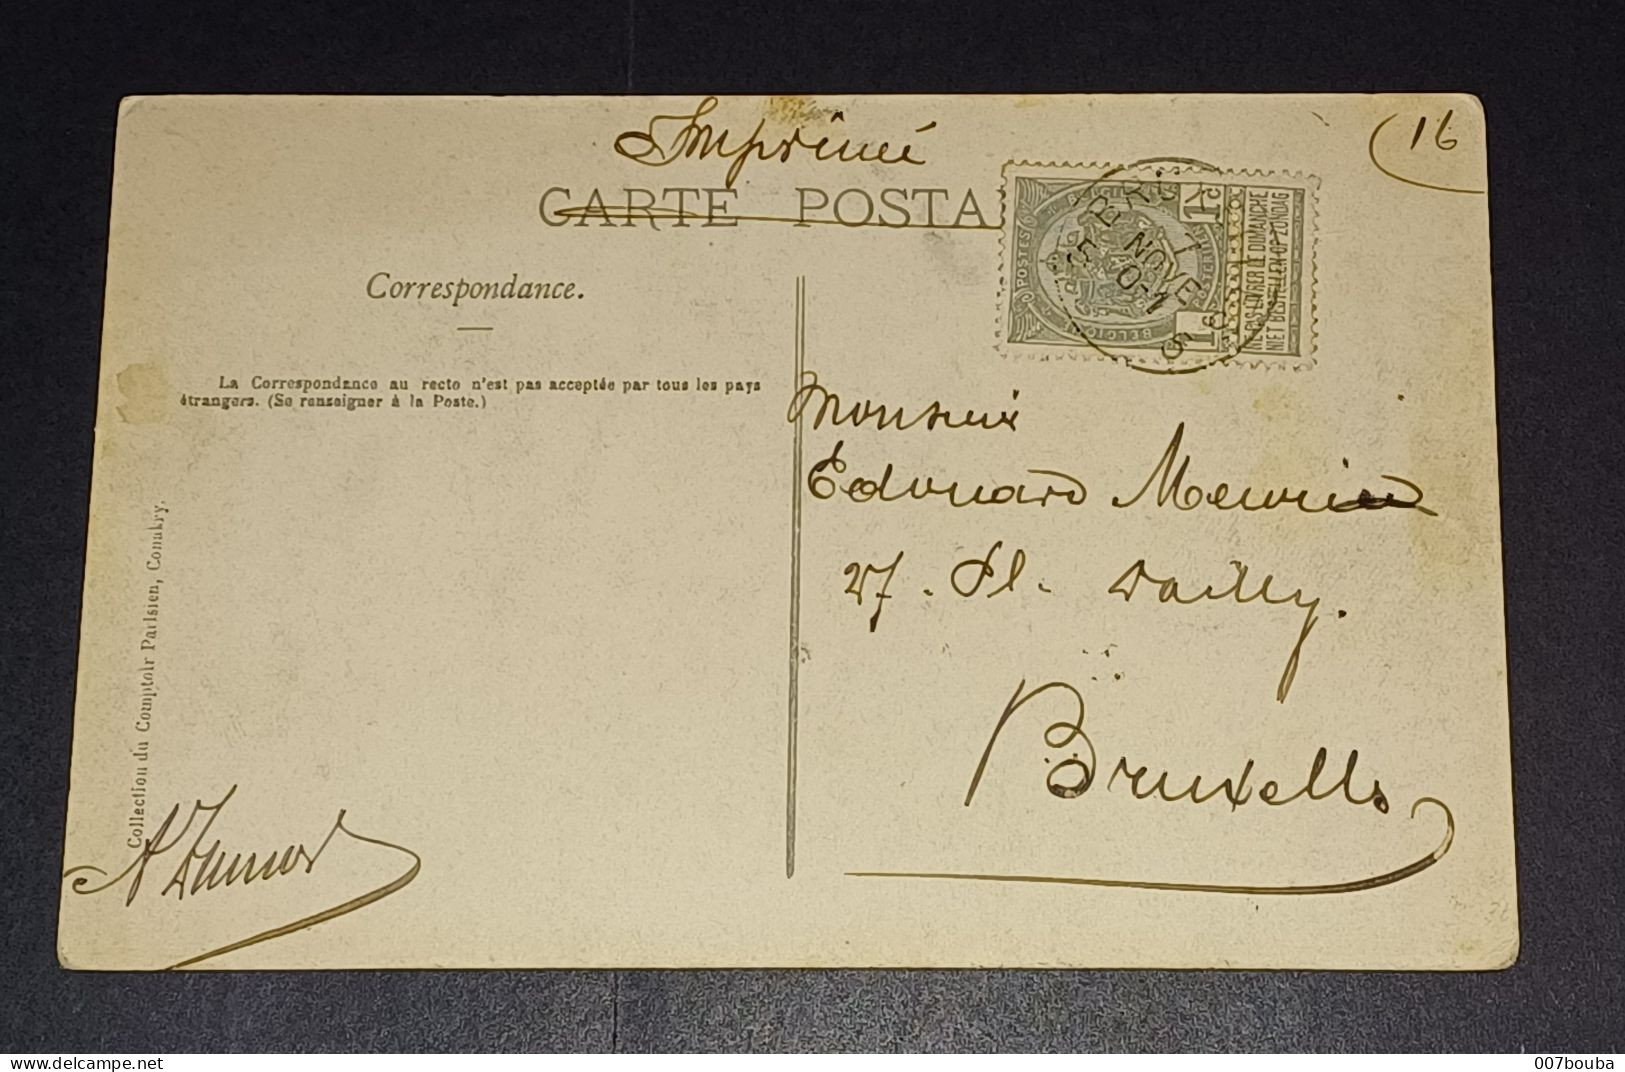 Imprimé
16
CARTE POSTA
Correspondance.
La Correspondance au recto n'est pas acceptée par tous les pays
étrangers. (Se renseigner à la Poste.)
POSTES
BELGIQUE
1c
1c
NE PAS LIVRER LE DIMANCHE
NIET BESTELLEN OP ZONDAG
7
NOVE
Monsieur
Edouard
27. Pl. Dailly.
Bruxelles
Collection du Comptoir Parisien, Conakry.
www.delcampe.net
007bouba